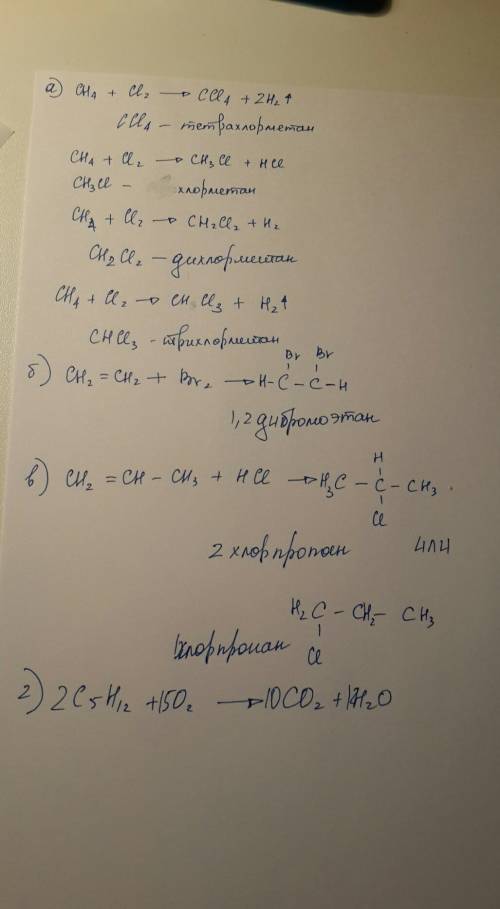 а) CH₄ + Cl₂ → CCl₄ + 2H₂↑
CCl₄ – тетрахлорметан
CH₄ + Cl₂ → CH₃Cl + HCl
CH₃Cl – хлорметан
CH₄ + Cl₂ → CH₂Cl₂ + H₂
CH₂Cl₂ – дихлорметан
CH₄ + Cl₂ → CHCl₃ + H₂↑
CHCl₃ – трихлорметан
Br Br
б) CH₂ = CH₂ + Br₂ → H – C – C – H
1,2 дибромоэтан
H
в) CH₂ = CH – CH₃ + HCl → H₃C – C – CH₃.
Cl
2 хлорпропан или
H₂C – CH₂ – CH₃
1хлорпропан Cl
г) 2C₅H₁₂ + 15O₂ → 10CO₂ + H₂O